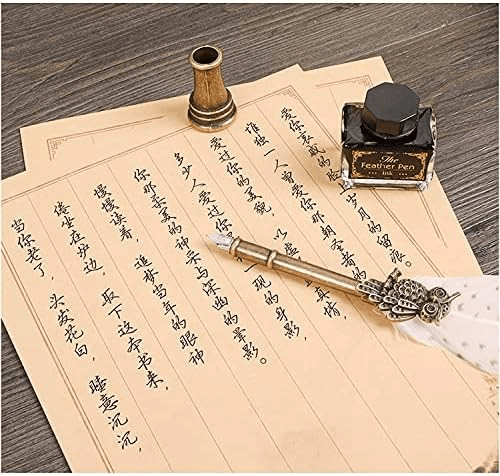 当你老了，头发花白，睡意沉沉，
倦坐在炉边，取下这本书来，
慢慢读着，追梦当年的眼神
你那柔美的神采与深幽的晕影。
多少人爱过你 一现的身影，
爱过你的美貌，以虚 真情，
惟独一人曾爱你那朝圣者的
爱你哀戚的 岁月的留痕。
The
Feather Pen
Ink